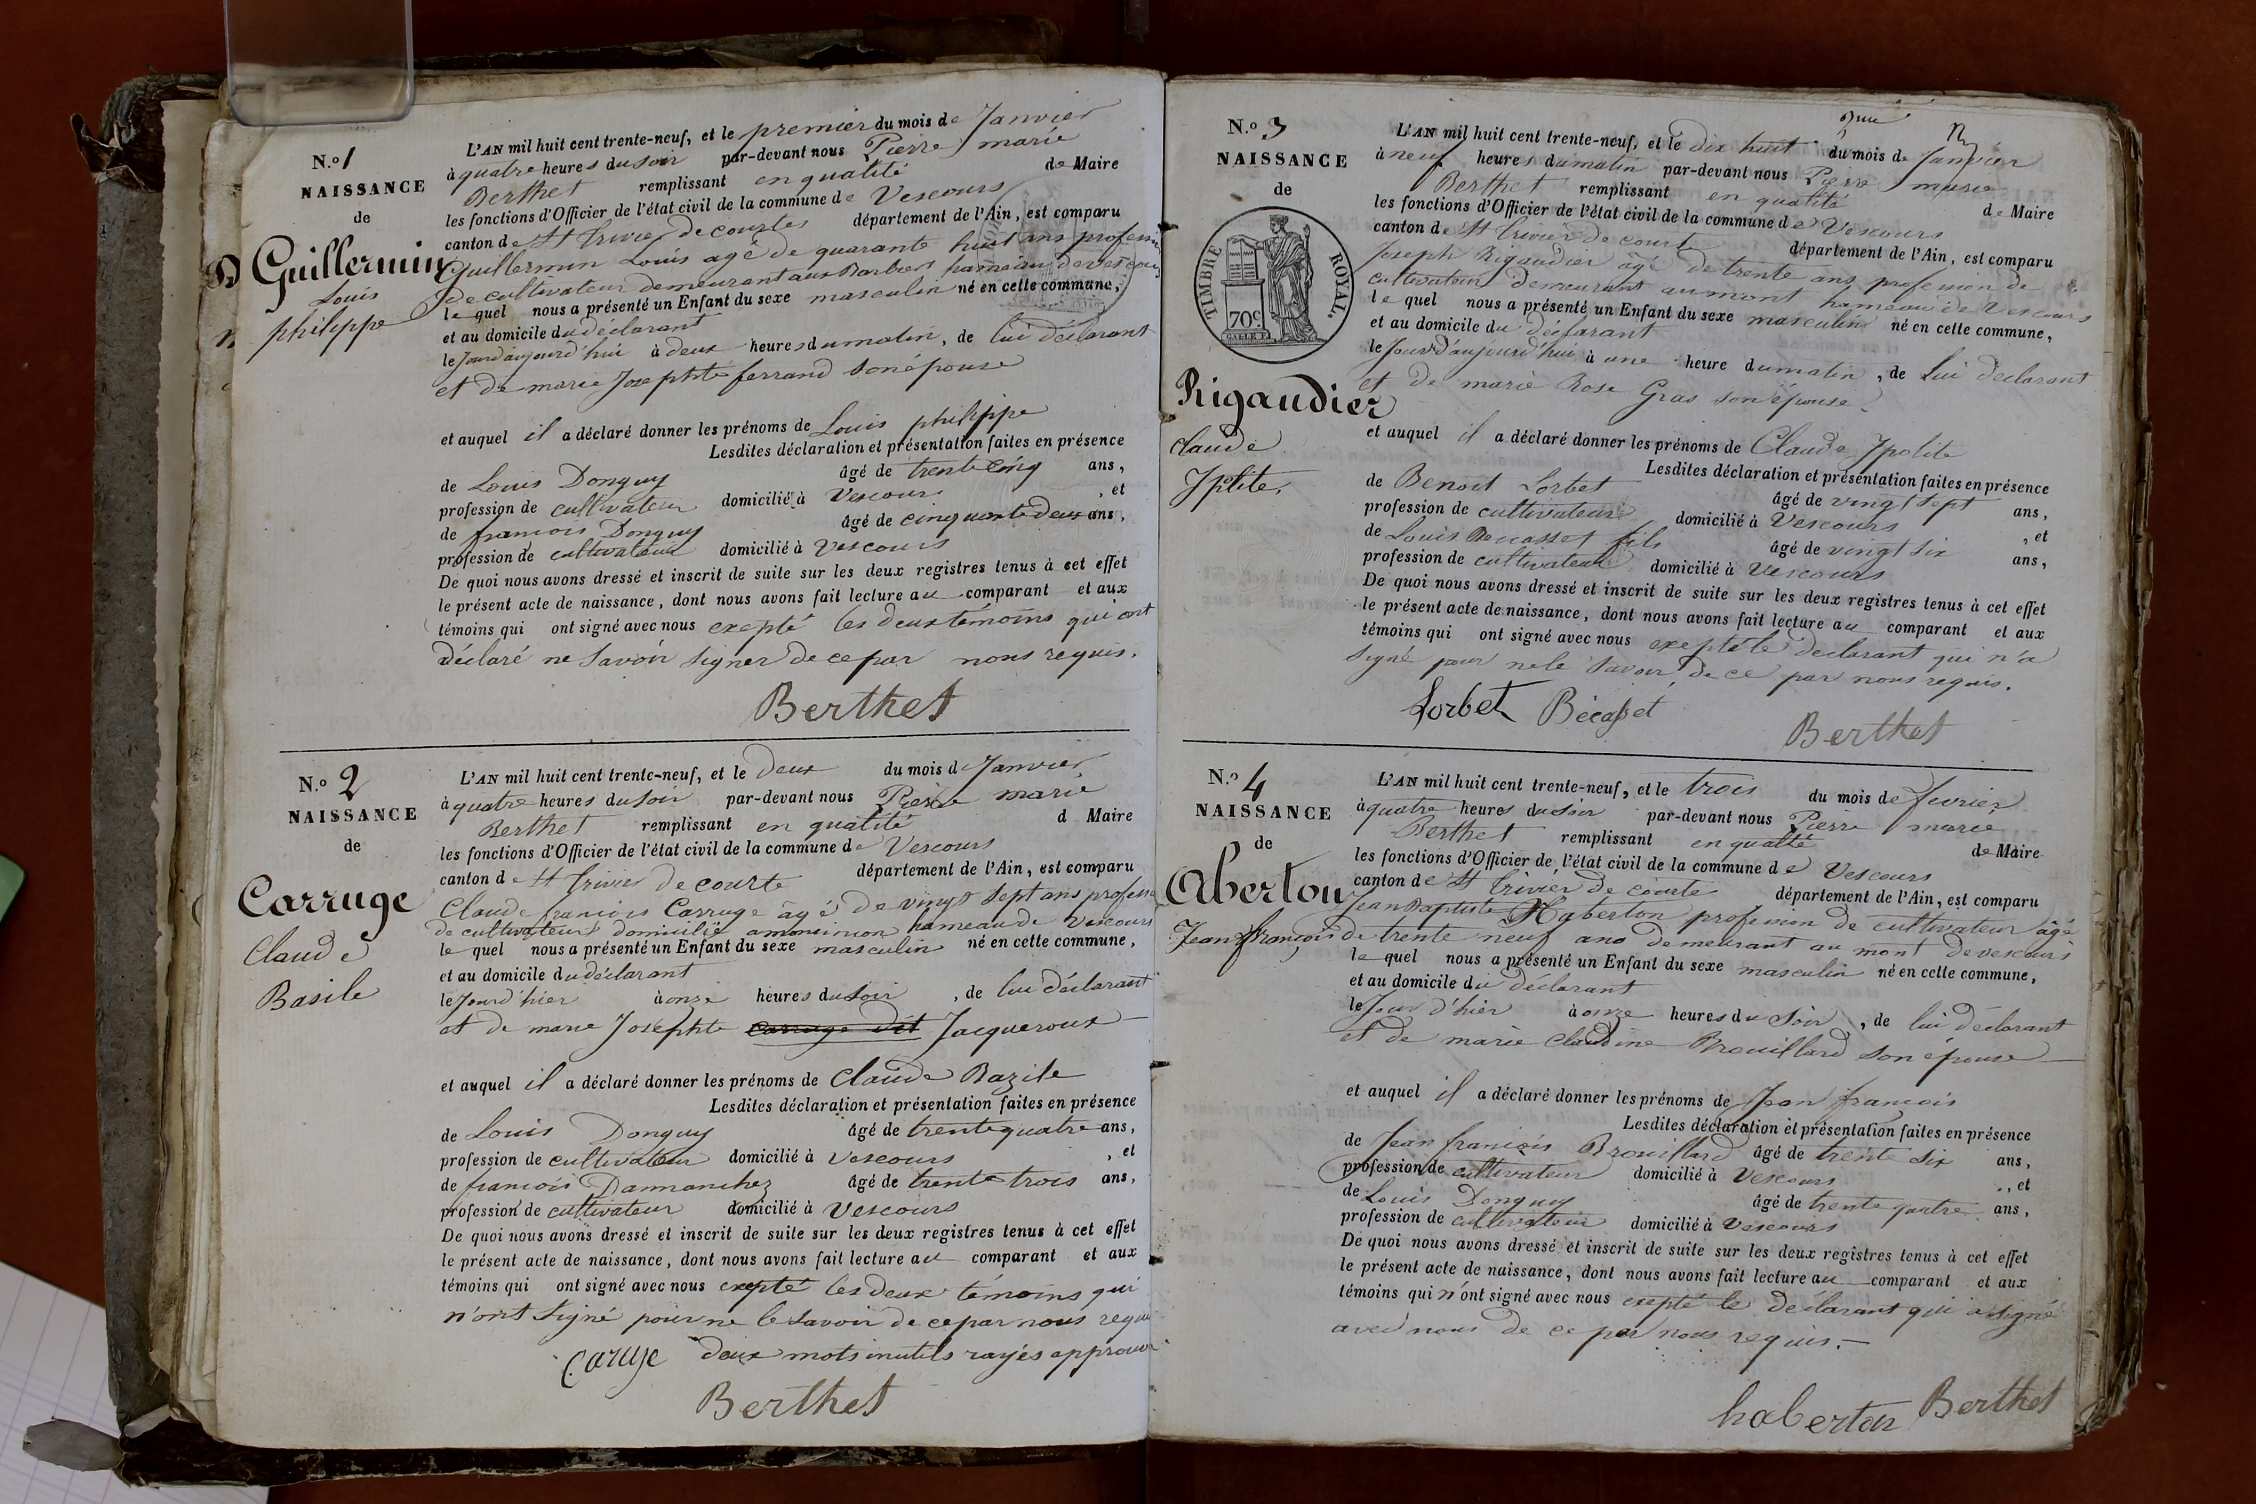 N.o 1
NAISSANCE
de
Guillermin
Louis
philippe
L'AN mil huit cent trente-neuf, et le premier du mois de Janvier
à quatre heures du soir par-devant nous Pierre marie
Berthet remplissant en qualité de Maire
les fonctions d'Officier de l'état civil de la commune de Vescours
canton de St Trivier de courtes département de l'Ain, est comparu
Guillermin Louis agé de quarante huit ans profession
de cultivateur demeurant aux Barbiers hameau de vescours
le quel nous a présenté un Enfant du sexe masculin né en cette commune,
et au domicile du déclarant
le Jourd'aujourd'hui à deux heures du matin, de lui déclarant
et de marie Josephte ferrand son épouse
et auquel il a déclaré donner les prénoms de Louis philippe
Lesdites déclaration et présentation faites en présence
de Louis Donguy âgé de trente cinq ans,
profession de cultivateur domicilié à Vescours, et
de francois Donguy âgé de cinquante deux ans,
profession de cultivateur domicilié à Vescours
De quoi nous avons dressé et inscrit de suite sur les deux registres tenus à cet effet
le présent acte de naissance, dont nous avons fait lecture au comparant et aux
témoins qui ont signé avec nous exepté les deux témoins qui ont
déclaré ne savoir signer de ce par nous requis.
Berthet
N.o 2
NAISSANCE
de
Carruge
Claude
Basile
L'AN mil huit cent trente-neuf, et le deux du mois de Janvier
à quatre heures du soir par-devant nous Pierre marie
Berthet remplissant en qualité d Maire
les fonctions d'Officier de l'état civil de la commune de Vescours
canton de St Trivier de courte département de l'Ain, est comparu
Claude francois Carruge âgé de vingt sept ans profession
de cultivateur domicilié hameau de Vescours
le quel nous a présenté un Enfant du sexe masculin né en cette commune,
et au domicile du déclarant
le Jourd'hier à onze heures du soir, de lui déclarant
et de marie Josephte carruge dit Jacqueroux
et auquel il a déclaré donner les prénoms de Claude Bazile
Lesdites déclaration et présentation faites en présence
de Louis Donguy âgé de trente quatre ans,
profession de cultivateur domicilié à Vescours, et
de francois Dannanchez âgé de trente trois ans,
profession de cultivateur domicilié à Vescours
De quoi nous avons dressé et inscrit de suite sur les deux registres tenus à cet effet
le présent acte de naissance, dont nous avons fait lecture au comparant et aux
témoins qui ont signé avec nous exepté les deux témoins qui
n'ont signé pour ne le savoir de ce par nous requis
Caruge deux mots inutils rayés approuvé
Berthet
N.o 3
NAISSANCE
de
TIMBRE ROYAL.
70c.
Rigaudier
Claude
Ipolite.
L'AN mil huit cent trente-neuf, et le dix huit du mois de Janvier
à neuf heures du matin par-devant nous Pierre marie
Berthet remplissant en qualité de Maire
les fonctions d'Officier de l'état civil de la commune de Vescours
canton de St Trivier de courte département de l'Ain, est comparu
Joseph Rigaudier âgé de trente ans profession de
cultivateur demeurant au mont hameau de Vescours
le quel nous a présenté un Enfant du sexe masculin né en cette commune,
et au domicile du déclarant
le Jourd'aujourd'hui à une heure du matin, de lui déclarant
et de marie Rose Gras son épouse.
et auquel il a déclaré donner les prénoms de Claude Ipolite
Lesdites déclaration et présentation faites en présence
de Benoit Lorbet âgé de vingt sept ans,
profession de cultivateur domicilié à Vescours, et
de Louis Becasset fils âgé de vingt six ans,
profession de cultivateur domicilié à Vescours
De quoi nous avons dressé et inscrit de suite sur les deux registres tenus à cet effet
le présent acte de naissance, dont nous avons fait lecture au comparant et aux
témoins qui ont signé avec nous exepté le déclarant qui n'a
signé pour ne le savoir de ce par nous requis.
Lorbet Bécasset
Berthet
N.o 4
NAISSANCE
de
Aberton
Jean françois
L'AN mil huit cent trente-neuf, et le trois du mois de fevrier
à quatre heures du soir par-devant nous Pierre marie
Berthet remplissant en qualité de Maire
les fonctions d'Officier de l'état civil de la commune de Vescours
canton de St Trivier de courte département de l'Ain, est comparu
Jean Baptiste Haberton profession de cultivateur âgé
de trente neuf ans demeurant au mont de vescours
le quel nous a présenté un Enfant du sexe masculin né en cette commune,
et au domicile du déclarant
le Jour d'hier à onze heures du soir, de lui déclarant
et de marie Claudine Brouillard son épouse
et auquel il a déclaré donner les prénoms de Jean françois
Lesdites déclaration et présentation faites en présence
de Jean françois Brouillard âgé de trente six ans,
profession de cultivateur domicilié à Vescours, et
de Louis Donguy âgé de trente quatre ans,
profession de cultivateur domicilié à Vescours
De quoi nous avons dressé et inscrit de suite sur les deux registres tenus à cet effet
le présent acte de naissance, dont nous avons fait lecture au comparant et aux
témoins qui n'ont signé avec nous exepté le déclarant qui a signé
avec nous de ce par nous requis.
haberton Berthet